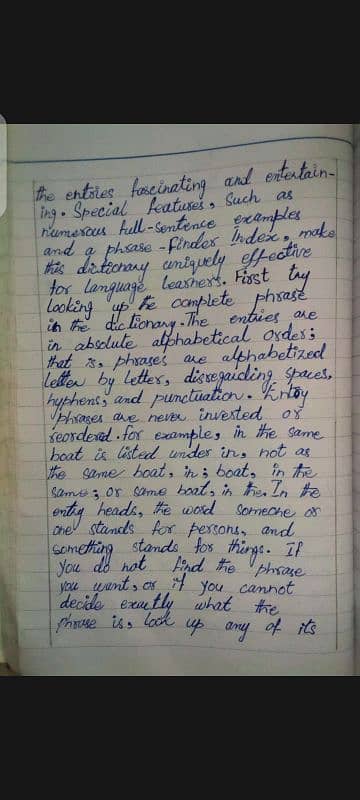 the entries fascinating and entertain-
ing. Special features, Such as
numerous full-sentence examples
and a phrase-finder Index, make
this dictionary uniquely effective
for language learners. First try
looking up the complete phrase
in the dictionary. The entries are
in absolute alphabetical order;
that is, phrases are alphabetized
letter by letter, disregarding spaces,
hyphens, and punctuation. Entry
phrases are never inverted or
reordered. for example, in the same
boat is listed under in, not as
the same boat, in; boat, in the
same; or same boat, in the. In the
entry heads, the word someone or
one stands for persons, and
something stands for things. If
you do not find the phrase
you want, or if you cannot
decide exactly what the
phrase is, look up any of its